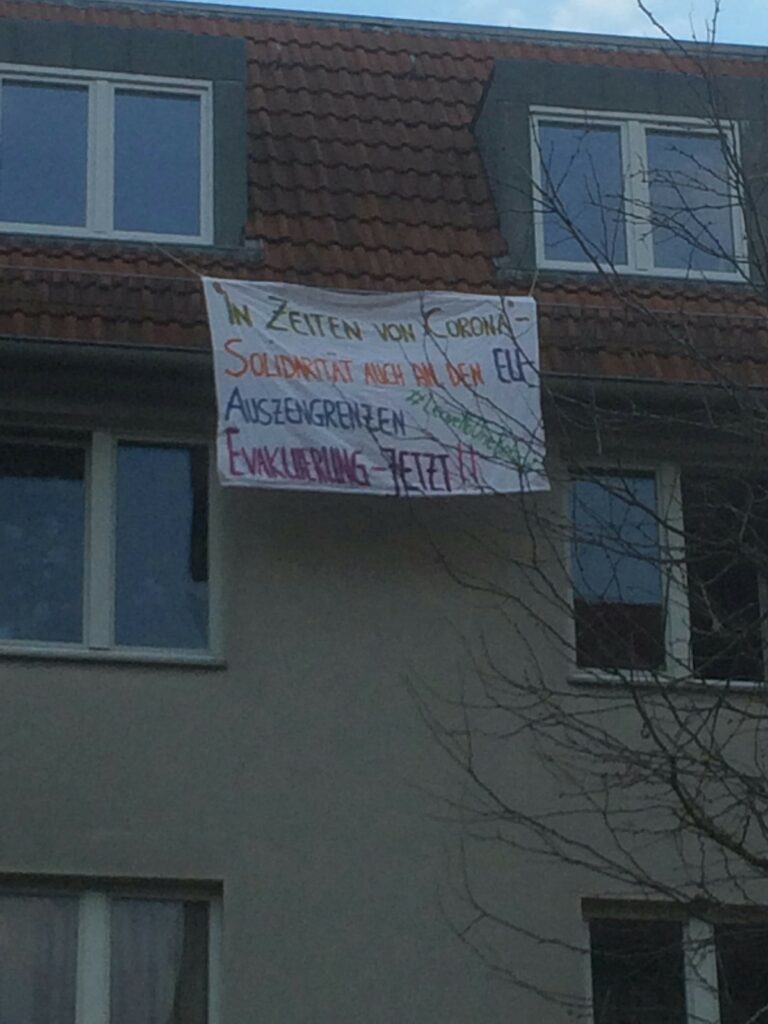 In Zeiten von Corona -
Solidarität auch an den EU-
Auszengrenzen
#LeaveNoOneBehind
Evakuierung - Jetzt!!